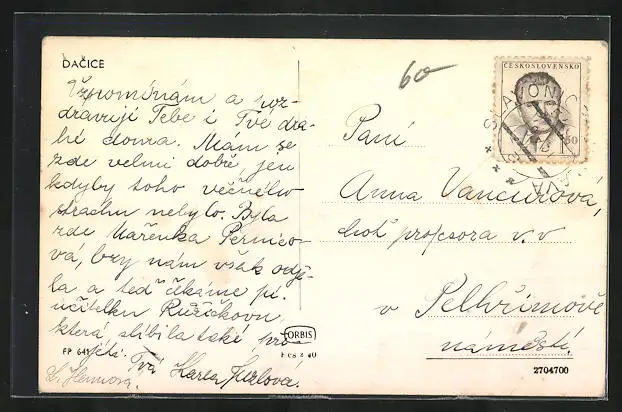 DAČICE
Vzpomínám a poz-
dravuji Tebe i Tvé dra-
hé doma. Mám se
zde velmi dobře, jen
kdyby toho věčného
strachu nebylo. Byla
zde Mařenka Pernico-
vá, brzy nám však odje-
la a teď čekáme pí.
učitelku Růžičkovu
která slíbila také při-
jeti. Tvá Karla
60
ČESKOSLOVENSKO
50
Paní
Anna Vancurová,
choť profesora v. v
v Pelhřimově
náměstí.
ORBIS
FP 641
2704700